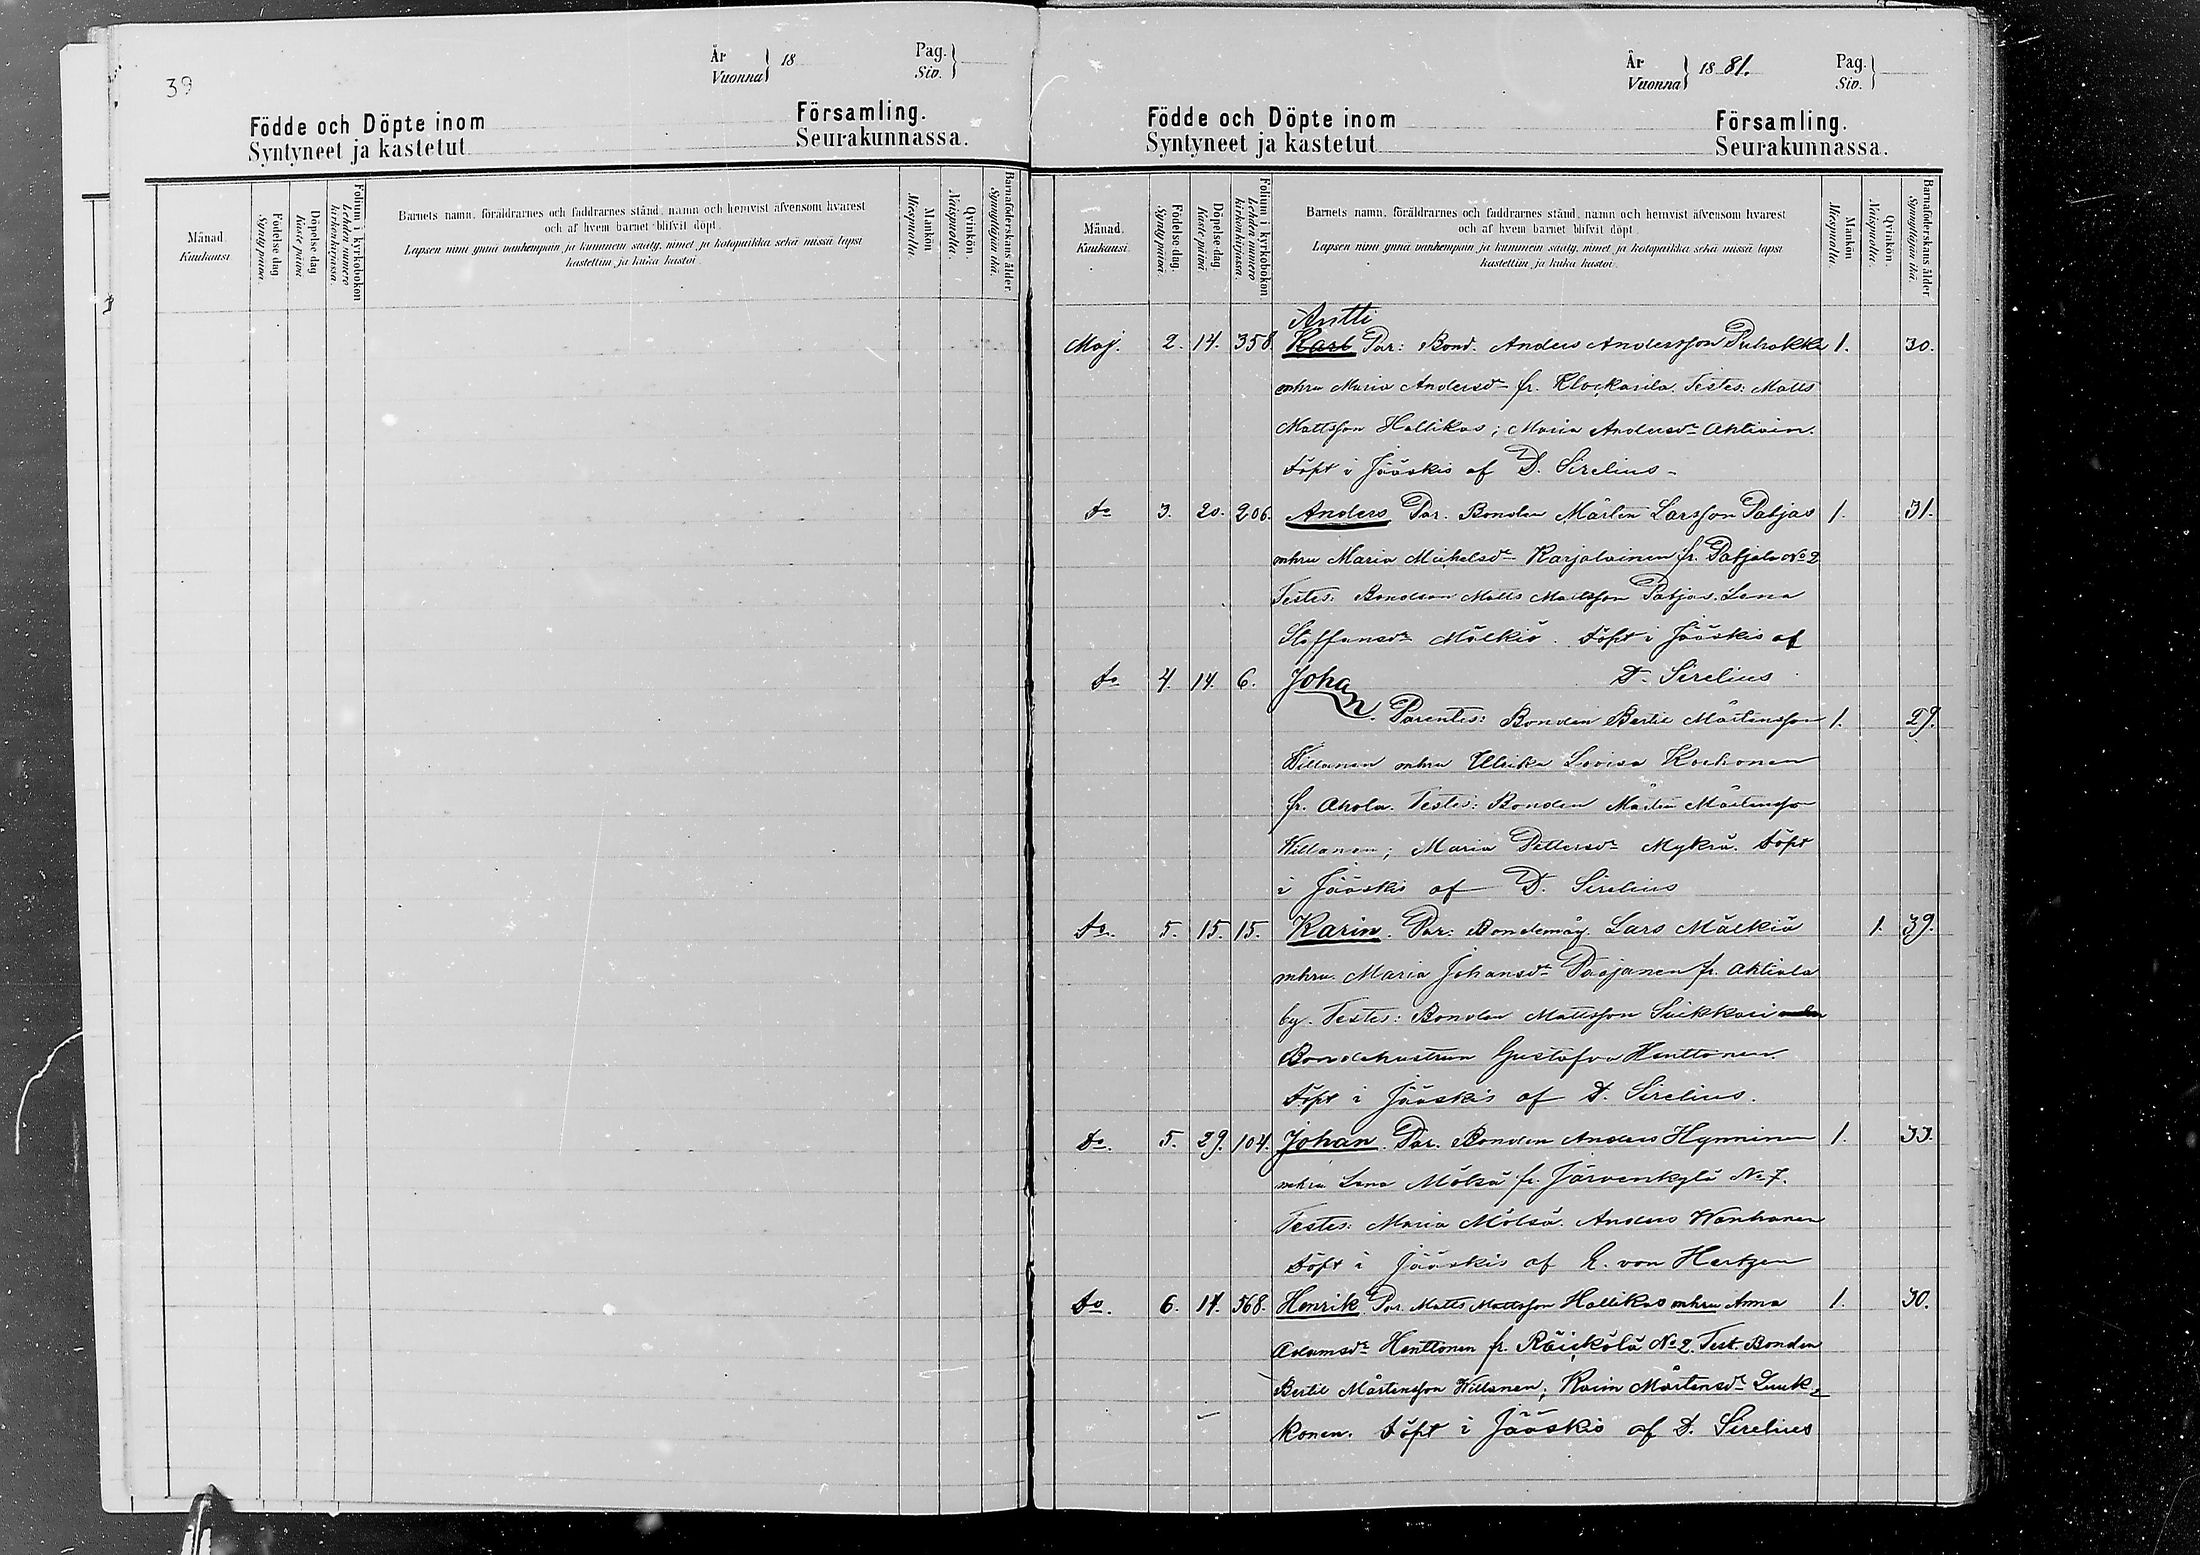 39
År Vuonna } 18
Pag. Siv. }
Födde och Döpte inom Församling.
Syntyneet ja kastetut Seurakunnassa.
Månad. Kuukausi.
Födelse dag. Synty päivä.
Döpelse dag. Kaste päivä.
Folium i kyrkobokon Lehden numero kirkonkirjassa
Barnets namn, föräldrarnes och faddrarnes stånd, namn och hemvist äfvensom hvarest
och af hvem barnet blifvit döpt.
Lapsen nimi ynnä vanhempain ja kummein sääty, nimet ja kotopaikka sekä missä lapsi
kastettiin ja kuka kastoi.
Mankön Miespuolta.
Qvinkön Naispuolta.
Barnaföderskans ålder Synnyttäjän ikä.
År Vuonna } 18 81.
Pag. Siv. }
Födde och Döpte inom Församling.
Syntyneet ja kastetut Seurakunnassa.
Månad. Kuukausi.
Födelse dag. Synty päivä.
Döpelse dag. Kaste päivä.
Folium i kyrkobokon Lehden numero kirkonkirjassa
Barnets namn, föräldrarnes och faddrarnes stånd, namn och hemvist äfvensom hvarest
och af hvem barnet blifvit döpt.
Lapsen nimi ynnä vanhempain ja kummein sääty, nimet ja kotopaikka sekä missä lapsi
kastettiin ja kuka kastoi.
Mankön Miespuolta.
Qvinkön Naispuolta.
Barnaföderskans ålder Synnyttäjän ikä.
Antti
Maj. 2. 14. 358. Karl Par: Bond. Anders Andersson Puhakka 1. 30.
mhru Maria Andersdr fr. Klockarila. Testes: Matts
Mattsson Hallikas; Maria Andersdr Ahtiain.
Döpt i Jääskis af D. Sirelius.
Do 3. 20. 206. Anders Par. Bonden Mårten Larsson Patjas 1. 31.
mhru Maria Michelsdr Karjalainen fr. Patjala No 2
Testes: Bondson Matts Mattsson Patjas. Lena
Staffansdr Mälkiä. Döpt i Jääskis af
Do 4. 14. 6. Johan D. Sirelius
Parentes: Bonden Bertil Mårtensson 1. 29.
Willanen mhru Ulrika Lovisa Korhonen
fr. Ahola. Testes: Bonden Mårten Mårtensson
Willanen; Maria Pettersdr Mykrä. Döpt
i Jääskis af D. Sirelius
Do. 5. 15. 15. Karin. Par: Bondemåg Lars Mälkiä 1. 39.
mhru. Maria Johansdr Paajanen fr. Ahtiala
by. Testes: Bonden Mattsson Suikkari
Bondehustrun Gustafva Henttonen.
Döpt i Jääskis af D. Sirelius.
Do. 5. 29. 104. Johan. Par. Bonden Anders Hynninen 1. 33.
mhru Lena Mölsä fr. Järvenkylä No 7.
Testes: Maria Mölsä. Anders Wanhanen
Döpt i Jääskis af E. von Hertzen
Do. 6. 14. 568. Henrik Par. Matts Mattsson Hallikas mhru Anna 1. 30.
Adamsdr Henttonen fr. Räickölä No 2. Test. Bonden
Bertil Mårtensson Willanen; Karin Mårtensdr Luuk=
konen. Döpt i Jääskis af D. Sirelius